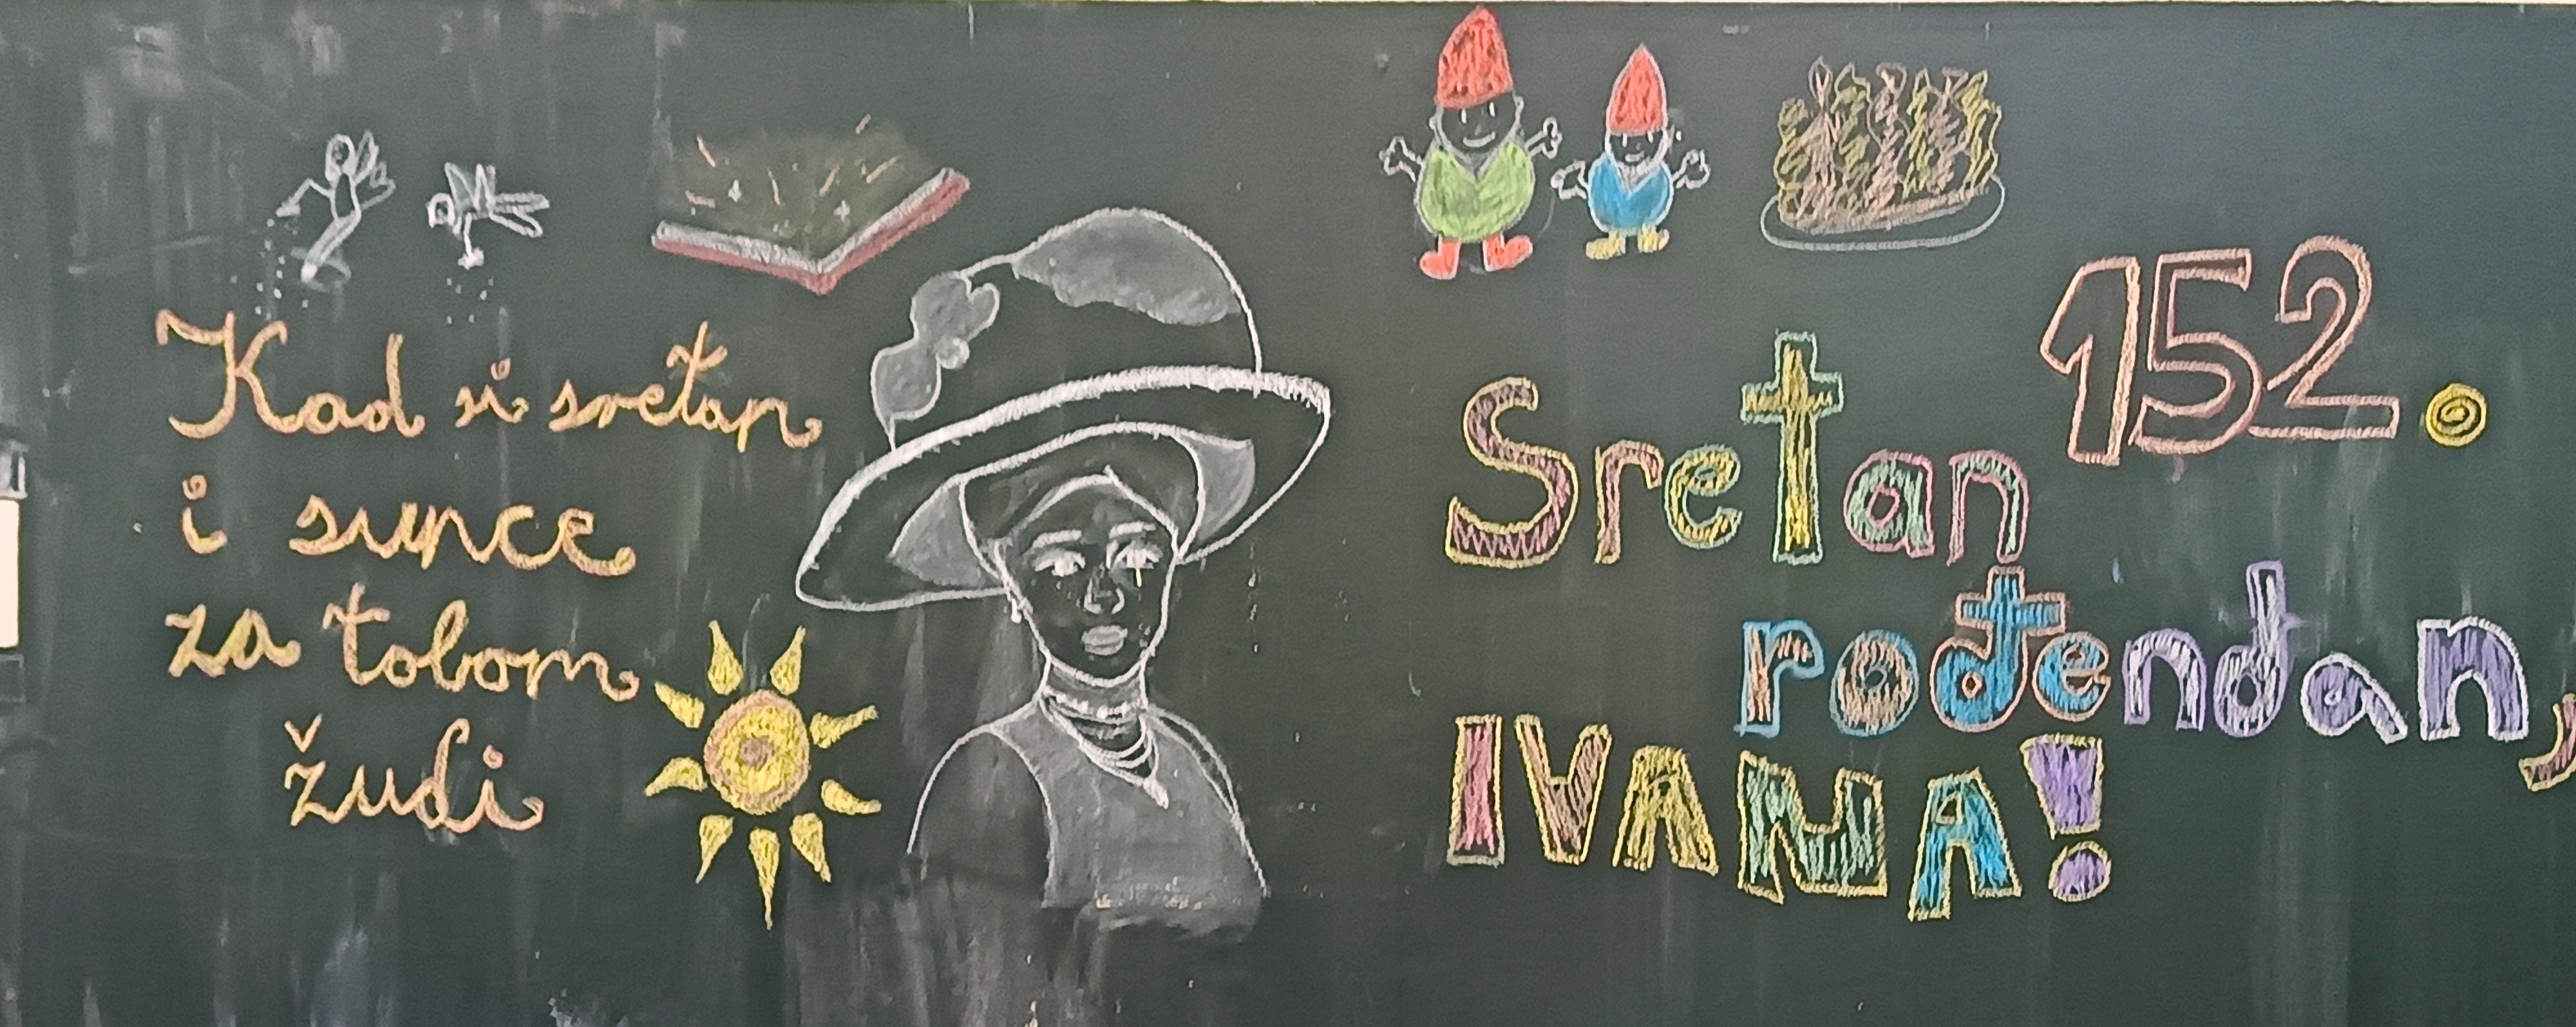 Kad si sretan
i sunce
za tobom
žudi
Sretan 152.
rođendan,
IVANA!